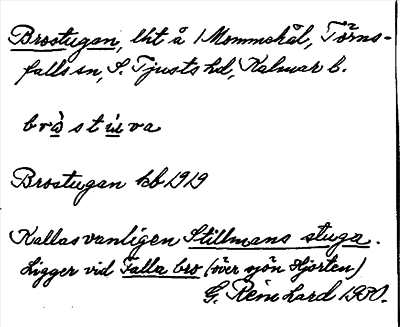 Brostugan, lht å 1 Mommehål, Törns-
falls sn, S. Tjusts hd, Kalmar l.
bròstùva
Brostugan kb 1919
Kallas vanligen Stillmans stuga.
Ligger vid Falla bro (över sjön Hjorten)
G. Reinhard 1930.